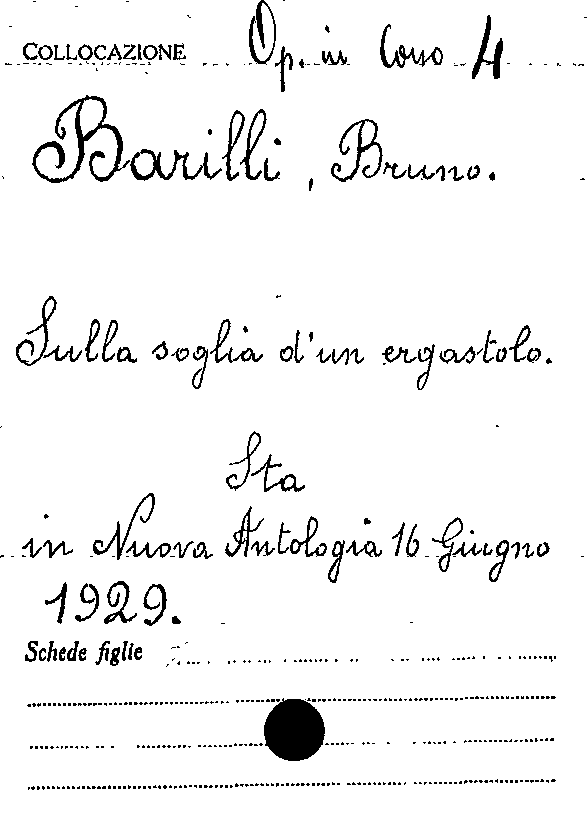 COLLOCAZIONE Op. in Corso 4
Barilli, Bruno.
Sulla soglia d'un ergastolo.
Sta
in Nuova Antologia 16 Giugno
1929.
Schede figlie